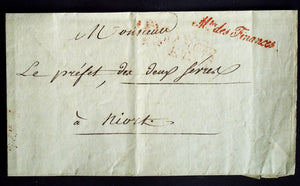 Monsieur
Mtre des Finances
Le préfet des deux Sèvres
à Niort